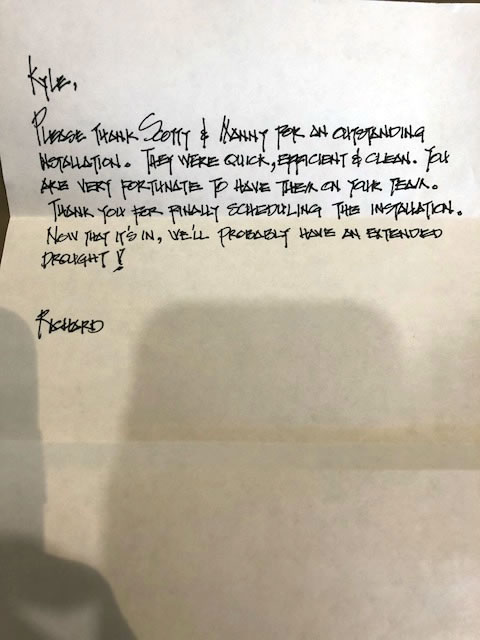 Kyle,
Please thank Scotty & Manny for an outstanding
installation. They were quick, efficient & clean. You
are very fortunate to have them on your team.
Thank you for finally scheduling the installation.
Now that it's in, we'll probably have an extended
drought!
Richard